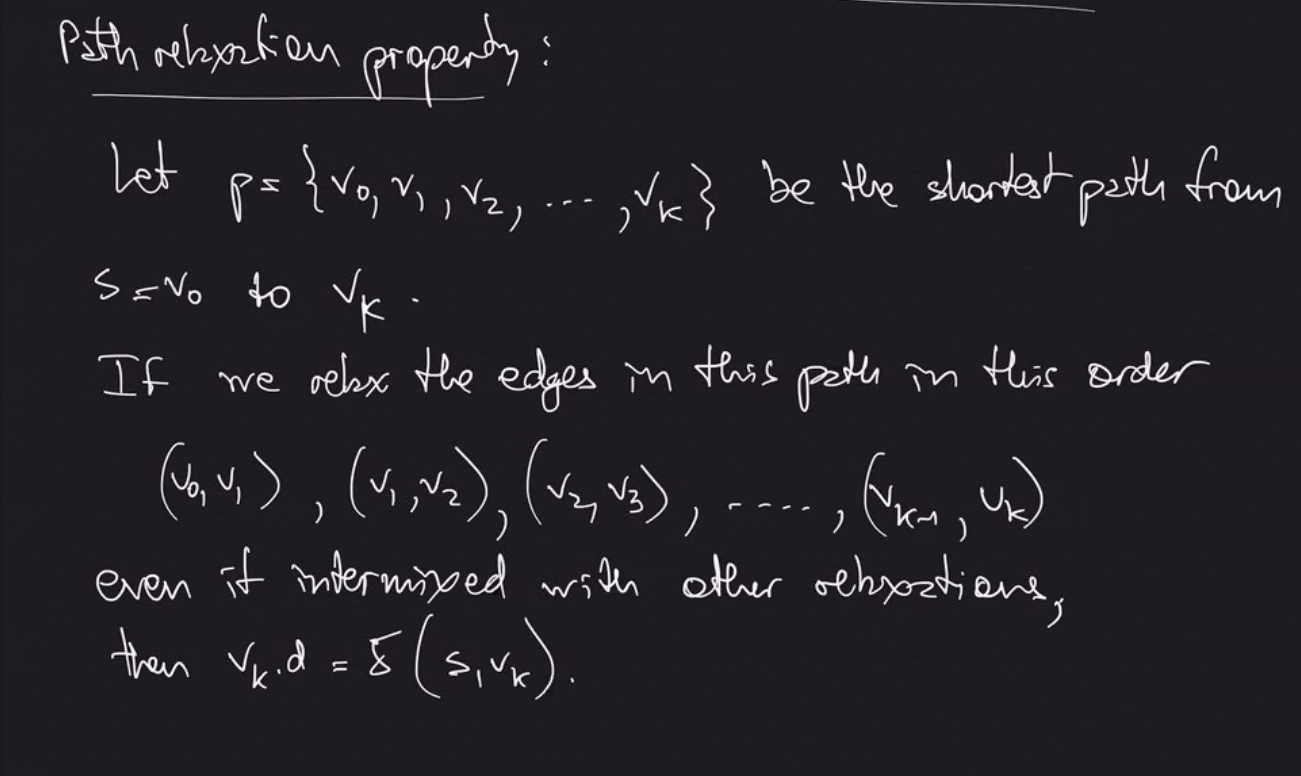 Path relaxation property:
Let p = {v₀, v₁, v₂, ..., vₖ} be the shortest path from
s = v₀ to vₖ.
If we relax the edges in this path in this order
(v₀, v₁), (v₁, v₂), (v₂, v₃), ...., (vₖ₋₁, vₖ)
even if intermixed with other relaxations,
then vₖ.d = δ(s, vₖ).